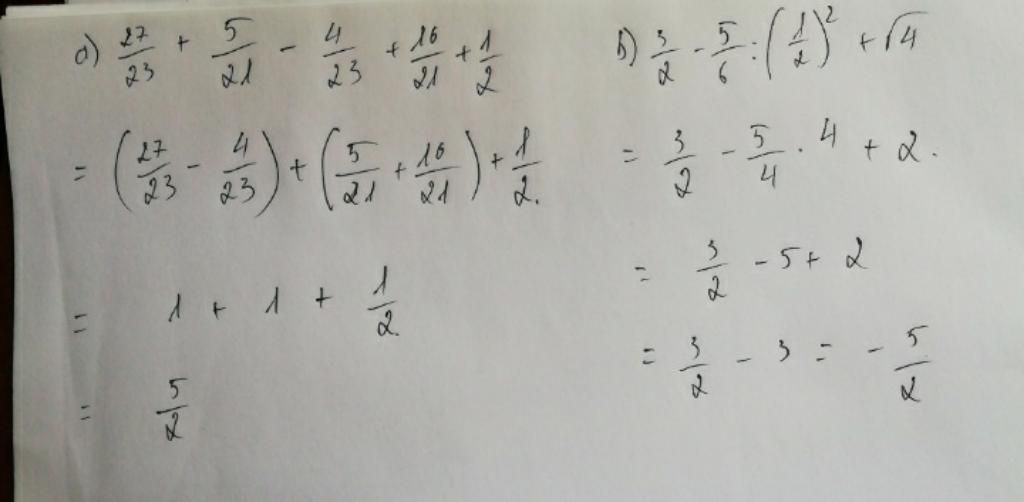 a) 27/23 + 5/21 - 4/23 + 16/21 + 1/2
= (27/23 - 4/23) + (5/21 + 16/21) + 1/2.
= 1 + 1 + 1/2
= 5/2
b) 3/2 - 5/6 : (1/2)² + √4
= 3/2 - 5/4 . 4 + 2.
= 3/2 - 5 + 2
= 3/2 - 3 = - 5/2